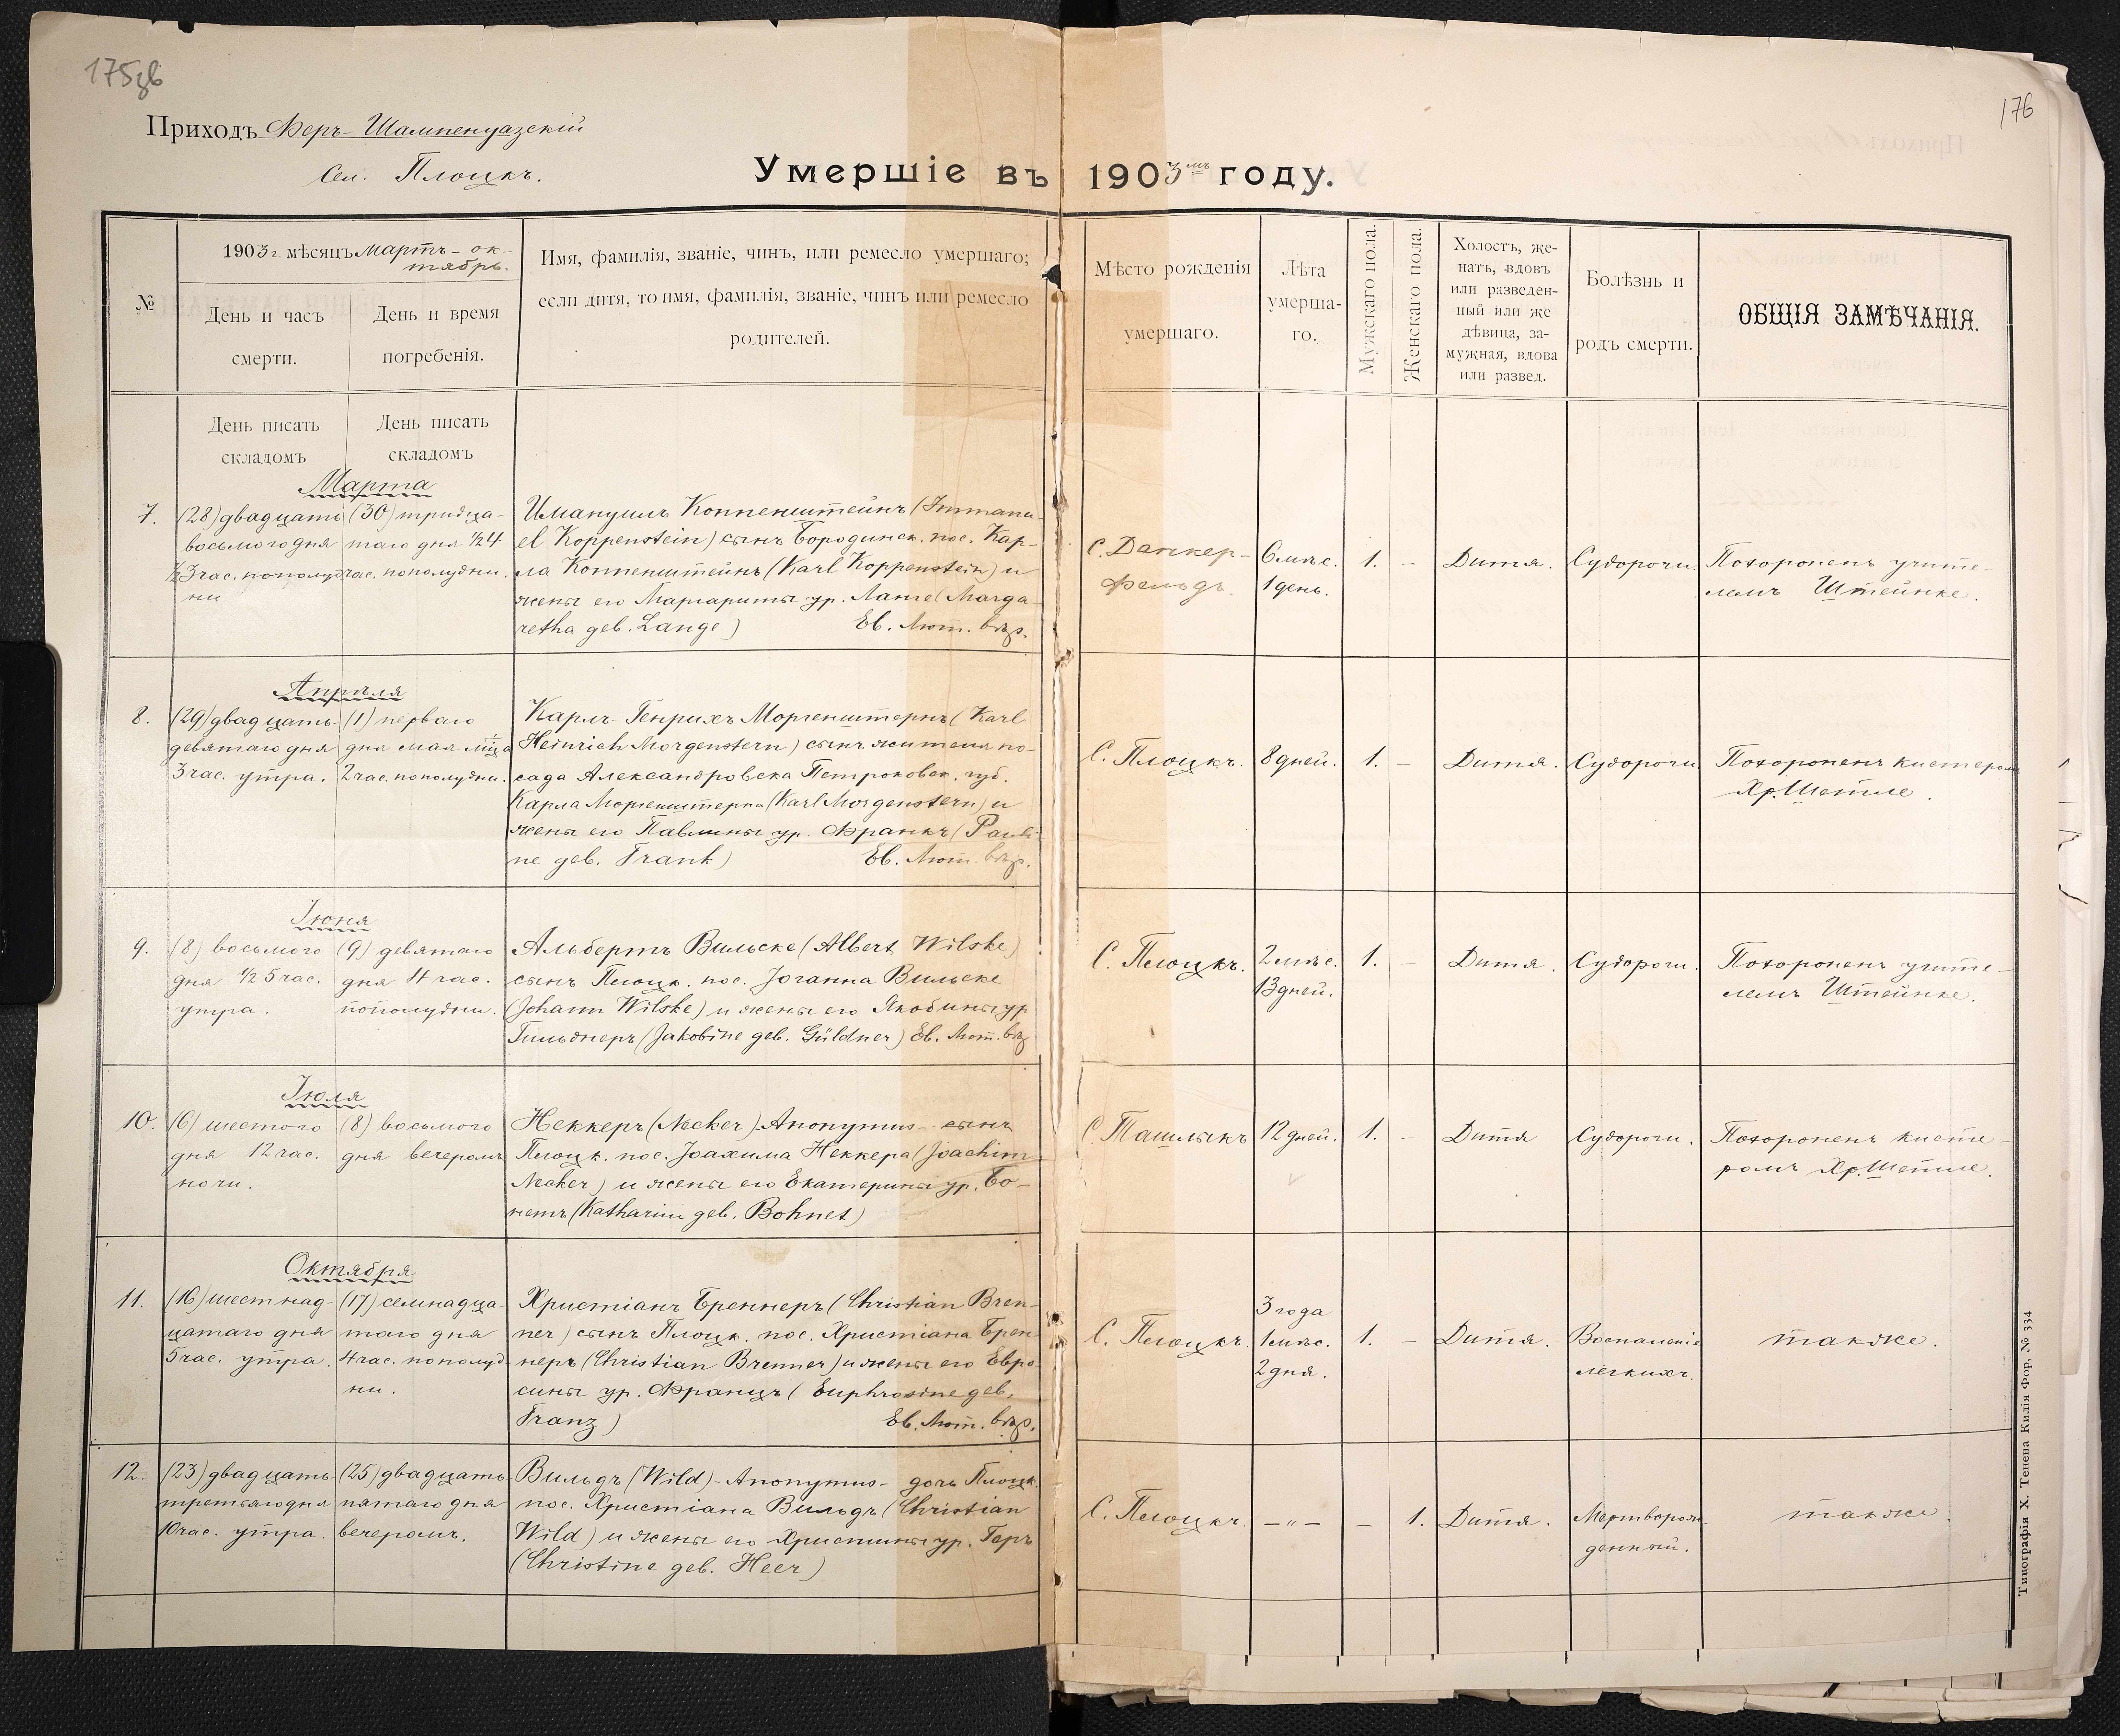 175об
176
Приходъ Феръ-Шампенуазскій
Сел. Плоцкъ.
Умершіе въ 1903мъ году.
№
1903 г. мѣсяцъ Мартъ - ок-
тябрь.
День и часъ
смерти.
День и время
погребенія.
Имя, фамилія, званіе, чинъ, или ремесло умершаго;
если дитя, то имя, фамилія, званіе, чинъ или ремесло
родителей.
Мѣсто рожденія
умершаго.
Лѣта
умерша-
го.
Мужскаго пола.
Женскаго пола.
Холостъ, же-
натъ, вдовъ
или разведен-
ный или же
дѣвица, за-
мужная, вдова
или развед.
Болѣзнь и
родъ смерти.
ОБЩІЯ ЗАМѢЧАНІЯ.
День писать
складомъ
День писать
складомъ
Марта
7.
(28) двадцать
восьмого дня
1/2 3 час. пополуд-
ни
(30) тридца-
таго дня 1/2 4
час. пополудни.
Имануилъ Коппенштейнъ (Immanu-
el Koppenstein) сынъ Бородинск. пос. Кар-
ла Коппенштейнъ (Karl Koppenstein) и
жены его Маргариты ур. Ланге (Marga-
retha geb. Lange) Ев. Лют. вѣр.
С. Данкер-
фельдъ.
6 мѣс.
1 день.
1.
-
Дитя.
Судороги
Похороненъ учите-
лемъ Штейнке.
Апрѣля
8.
(29) двадцать
девятаго дня
3 час. утра.
(1) перваго
дня мая мѣца
2 час. пополудни.
Карлъ-Генрихъ Моргенштернъ (Karl
Heinrich Morgenstern) сынъ жителя по-
сада Александровска Петроковск. губ.
Карла Моргенштерна (Karl Morgenstern) и
жены его Павлины ур. Франкъ (Pauli-
ne geb. Frank) Ев. Лют. вѣр.
С. Плоцкъ.
8 дней.
1.
-
Дитя.
Судороги
Похороненъ кистеромъ
Хр. Шетле.
Іюня
9.
(8) восьмого
дня 1/2 5 час.
утра.
(9) девятаго
дня 4 час.
пополудни.
Альбертъ Вильске (Albert Wilske)
сынъ Плоцк. пос. Іоганна Вильске
(Johann Wilske) и жены его Якобины ур
Гильднеръ (Jakobine geb. Güldner) Ев. Лют. вѣр
С. Плоцкъ.
2 мѣс.
13 дней.
1.
-
Дитя.
Судороги.
Похороненъ учите-
лемъ Штейнке.
Іюля
10.
(6) шестого
дня 12 час.
ночи.
(8) восьмого
дня вечеромъ
Неккеръ (Necker) - Anonymus - сынъ
Плоцк. пос. Іоахима Неккера (Joachim
Necker) и жены его Екатерины ур. Бо-
нетъ (Katharine geb. Bohnet)
С. Ташлыкъ
12 дней.
1.
-
Дитя
Судороги.
Похороненъ кисте-
ромъ Хр. Шетле.
Октября
11.
(16) шестнад-
цатаго дня
5 час. утра.
(17) семнадца-
таго дня
4 час. пополуд-
ни.
Христіанъ Бреннеръ (Christian Bren-
ner) сынъ Плоцк. пос. Христіана Брен-
неръ (Christian Brenner) и жены его Евро-
сины ур. Францъ (Euphrosine geb.
Franz) Ев. Лют. вѣр.
С. Плоцкъ.
3 года
1 мѣс.
2 дня.
1.
-
Дитя.
Воспаленіе
легкихъ.
также.
12.
(23) двадцать
третьяго дня
10 час. утра.
(25) двадцать
пятаго дня
вечеромъ.
Вильдъ (Wild) - Anonymus - дочь Плоцк.
пос. Христіана Вильдъ (Christian
Wild) и жены его Христины ур. Геръ
(Christine geb. Heer)
С. Плоцкъ.
- " -
-
1.
Дитя.
Мертворож-
денный.
также
Типографія Х. Тенена Килія Фор. № 334